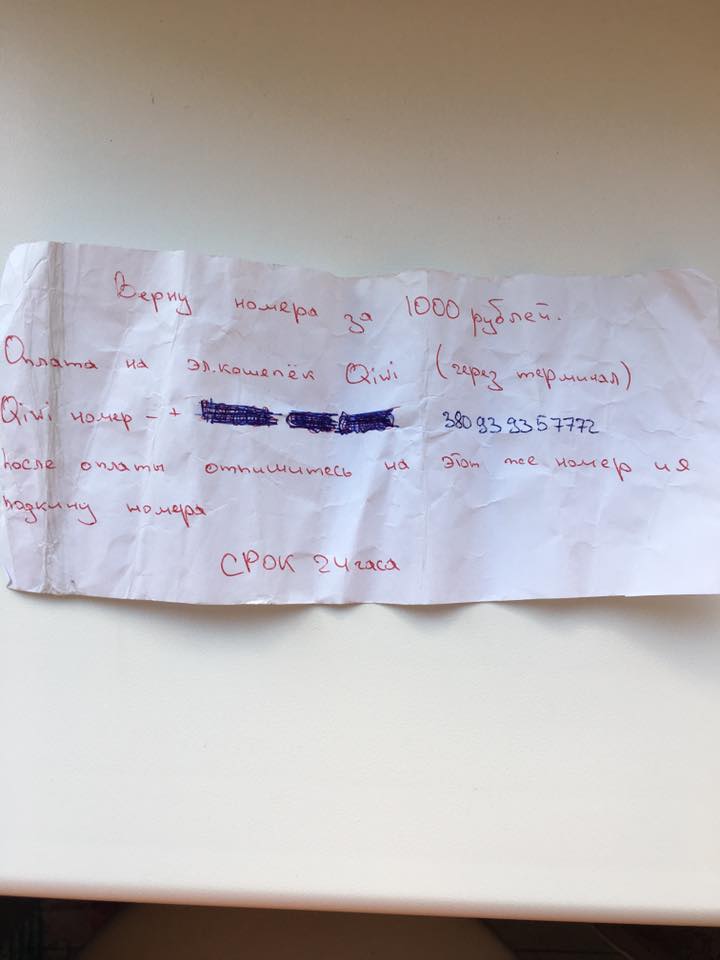 Верну номера за 1000 рублей.
Оплата на эл.кошелёк Qiwi (через терминал)
Qiwi номер - + 380 93 9357772
после оплаты отпишитесь на этот же номер и я
подкину номера
СРОК 24 часа